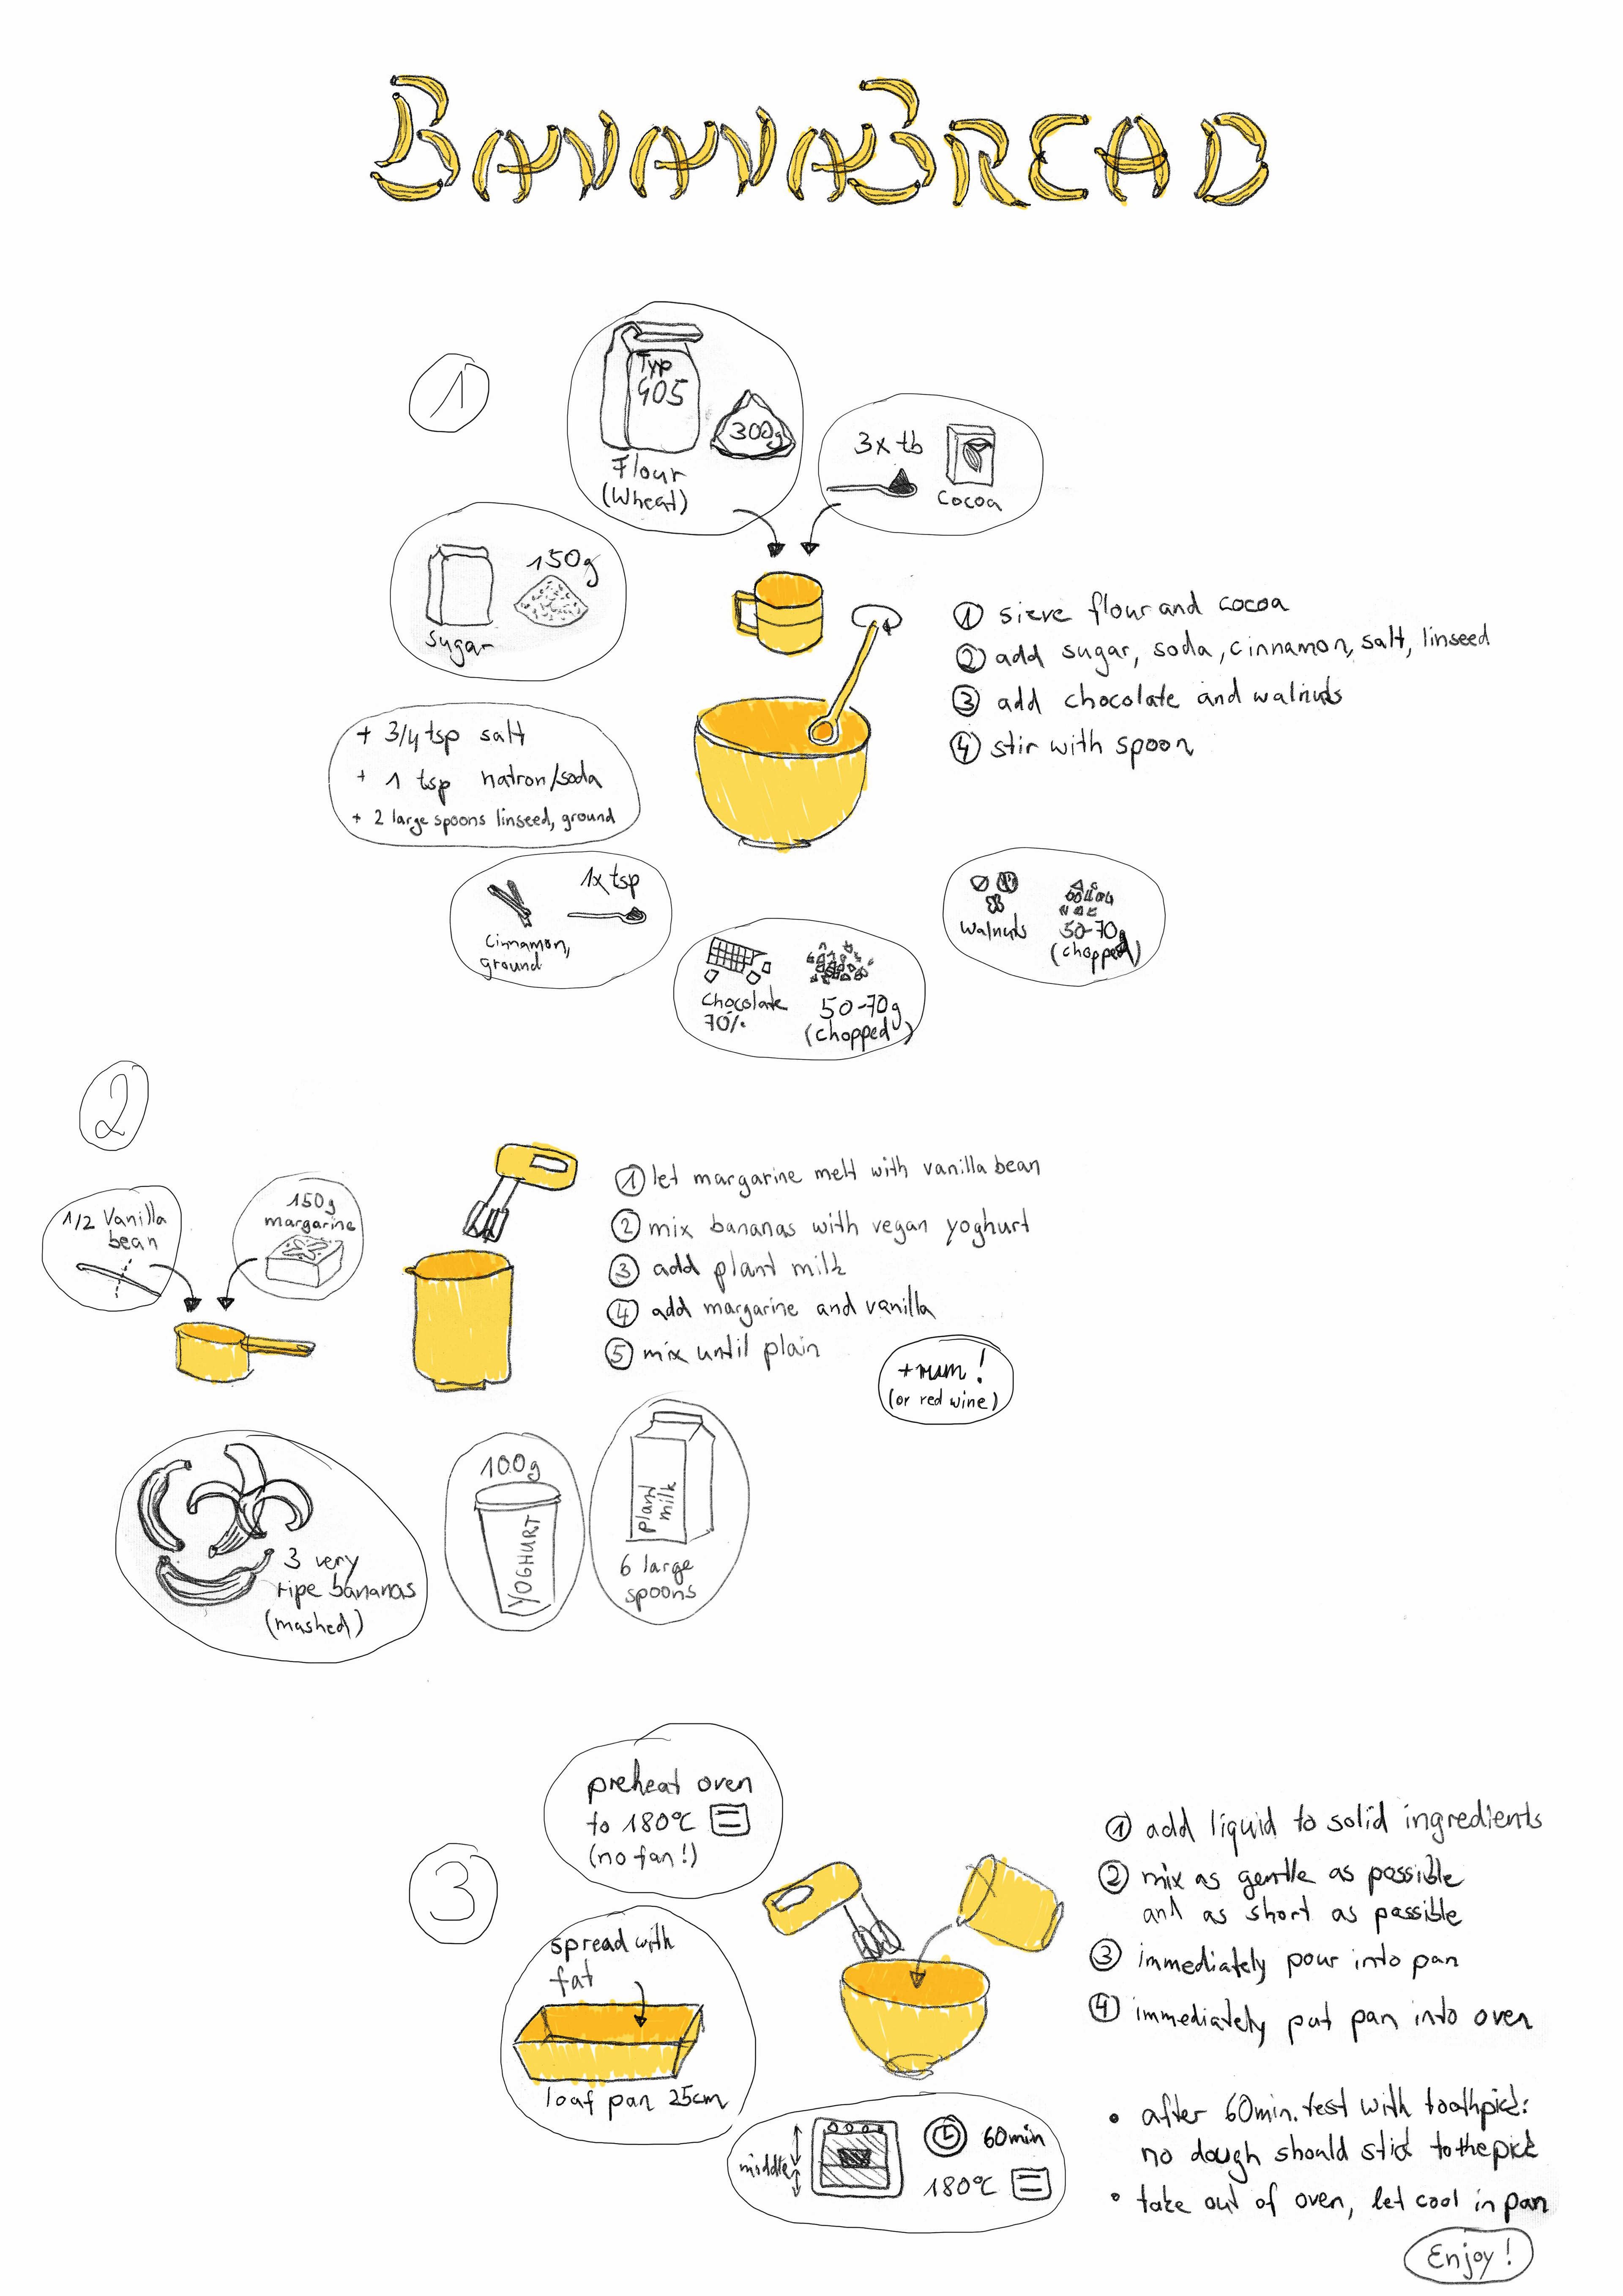 BANANABREAD
1
Typ
405
300g
Flour
(Wheat)
3x tb
Cocoa
150g
sugar
+ 3/4 tsp salt
+ 1 tsp natron/soda
+ 2 large spoons linseed, ground
1x tsp
cinnamon,
ground
chocolate
70%
50-70g
(chopped)
walnuts
50-70g
(chopped)
① sieve flour and cocoa
② add sugar, soda, cinnamon, salt, linseed
③ add chocolate and walnuts
④ stir with spoon
2
1/2 Vanilla
bean
150g
margarine
① let margarine melt with vanilla bean
② mix bananas with vegan yoghurt
③ add plant milk
④ add margarine and vanilla
⑤ mix until plain
+ rum!
(or red wine)
3 very
ripe bananas
(mashed)
100g
YOGHURT
Plant
milk
6 large
spoons
3
preheat oven
to 180°C
(no fan!)
spread with
fat
loaf pan 25cm
① add liquid to solid ingredients
② mix as gentle as possible
and as short as possible
③ immediately pour into pan
④ immediately put pan into oven
middle
60min
180°C
• after 60min. test with toothpick:
no dough should stick to the pick
• take out of oven, let cool in pan
Enjoy!